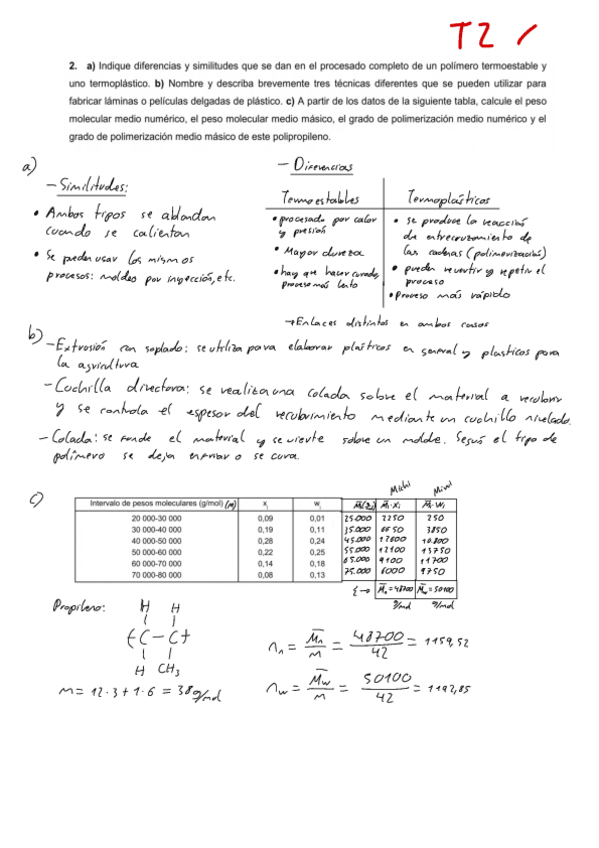 T2 /
2. a) Indique diferencias y similitudes que se dan en el procesado completo de un polímero termoestable y
uno termoplástico. b) Nombre y describa brevemente tres técnicas diferentes que se pueden utilizar para
fabricar láminas o películas delgadas de plástico. c) A partir de los datos de la siguiente tabla, calcule el peso
molecular medio numérico, el peso molecular medio másico, el grado de polimerización medio numérico y el
grado de polimerización medio másico de este polipropileno.
a)
- Similitudes:
• Ambos tipos se ablandan
cuando se calientan
• Se pueden usar los mismos
procesos: moldeo por inyección, etc.
- Diferencias
Termoestables
• procesado por calor
y presión
• Mayor dureza
• hay que hacer curado,
proceso más lento
Termoplásticos
• se produce la reacción
de entrecruzamiento de
las cadenas (polimerización)
• pueden revertir y repetir el
proceso
• proceso más rápido
→ Enlaces distintos en ambos casos
b)
- Extrusión con soplado: se utiliza para elaborar plásticos en general y plasticos para
la agricultura
- Cuchilla directora: se realiza una colada sobre el material a recubrir
y se controla el espesor del recubrimiento mediante un cuchillo nivelado.
- Colada: se funde el material y se vierte sobre un molde. Según el tipo de
polímero se deja enfriar o se cura.
c)
Intervalo de pesos moleculares (g/mol) (M) xi wi M̄i M̄i·xi M̄i·wi
20 000-30 000 0,09 0,01 25.000 2250 250
30 000-40 000 0,19 0,11 35.000 6650 3850
40 000-50 000 0,28 0,24 45.000 12600 10.800
50 000-60 000 0,22 0,25 55.000 12100 13750
60 000-70 000 0,14 0,18 65.000 9100 11700
70 000-80 000 0,08 0,13 75.000 6000 9750
Σ → M̄n = 48700 M̄w = 50100
g/mol g/mol
Propileno:
H H
(C - C)
H CH3
m = 12·3 + 1·6 = 38 g/mol
nn = M̄n / m = 48700 / 42 = 1159,52
nw = M̄w / m = 50100 / 42 = 1192,85